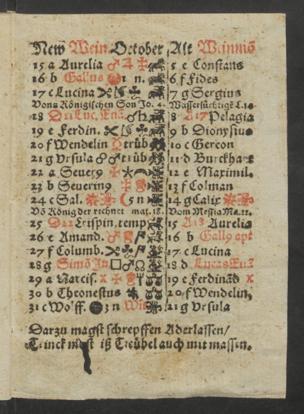 New Wein October, Alt Weinmo
15 a Aurelia 5 e Constans
16 b Gallus n. 6 f Fides
17 c Lucina 7 g Sergius
Vons Königischen Son Jo. 4. Wassersüchtigē L. 14.
18 Luc. Eua. Pelagia
19 e Ferdin. 9 b Dionysius
20 f Wendelin Trüb 10 c Gereon
21 g Vrsula trüb 11 d Burckhar
22 a Severy 12 e Maximil.
23 b Severinq 13 f Colman
24 c Sal. n 14 g Calix
Vō König der rechnet mat. 18. Vom Messia Ma. 22.
25 Crispin temp. Aurelia
26 e Amand. 16 b Gally opt
27 f Columb. 17 c Lucina
28 g Simō Ju 18 d Lucas Eua
29 a Narcis. 19 e Ferdinād
30 b Theonestus 20 f Wendelin,
31 c Wolff. n 21 g Vrsula
Darzu magst schrepffen Aderlassen/
Trinck most iß Treübel auch mit massen.